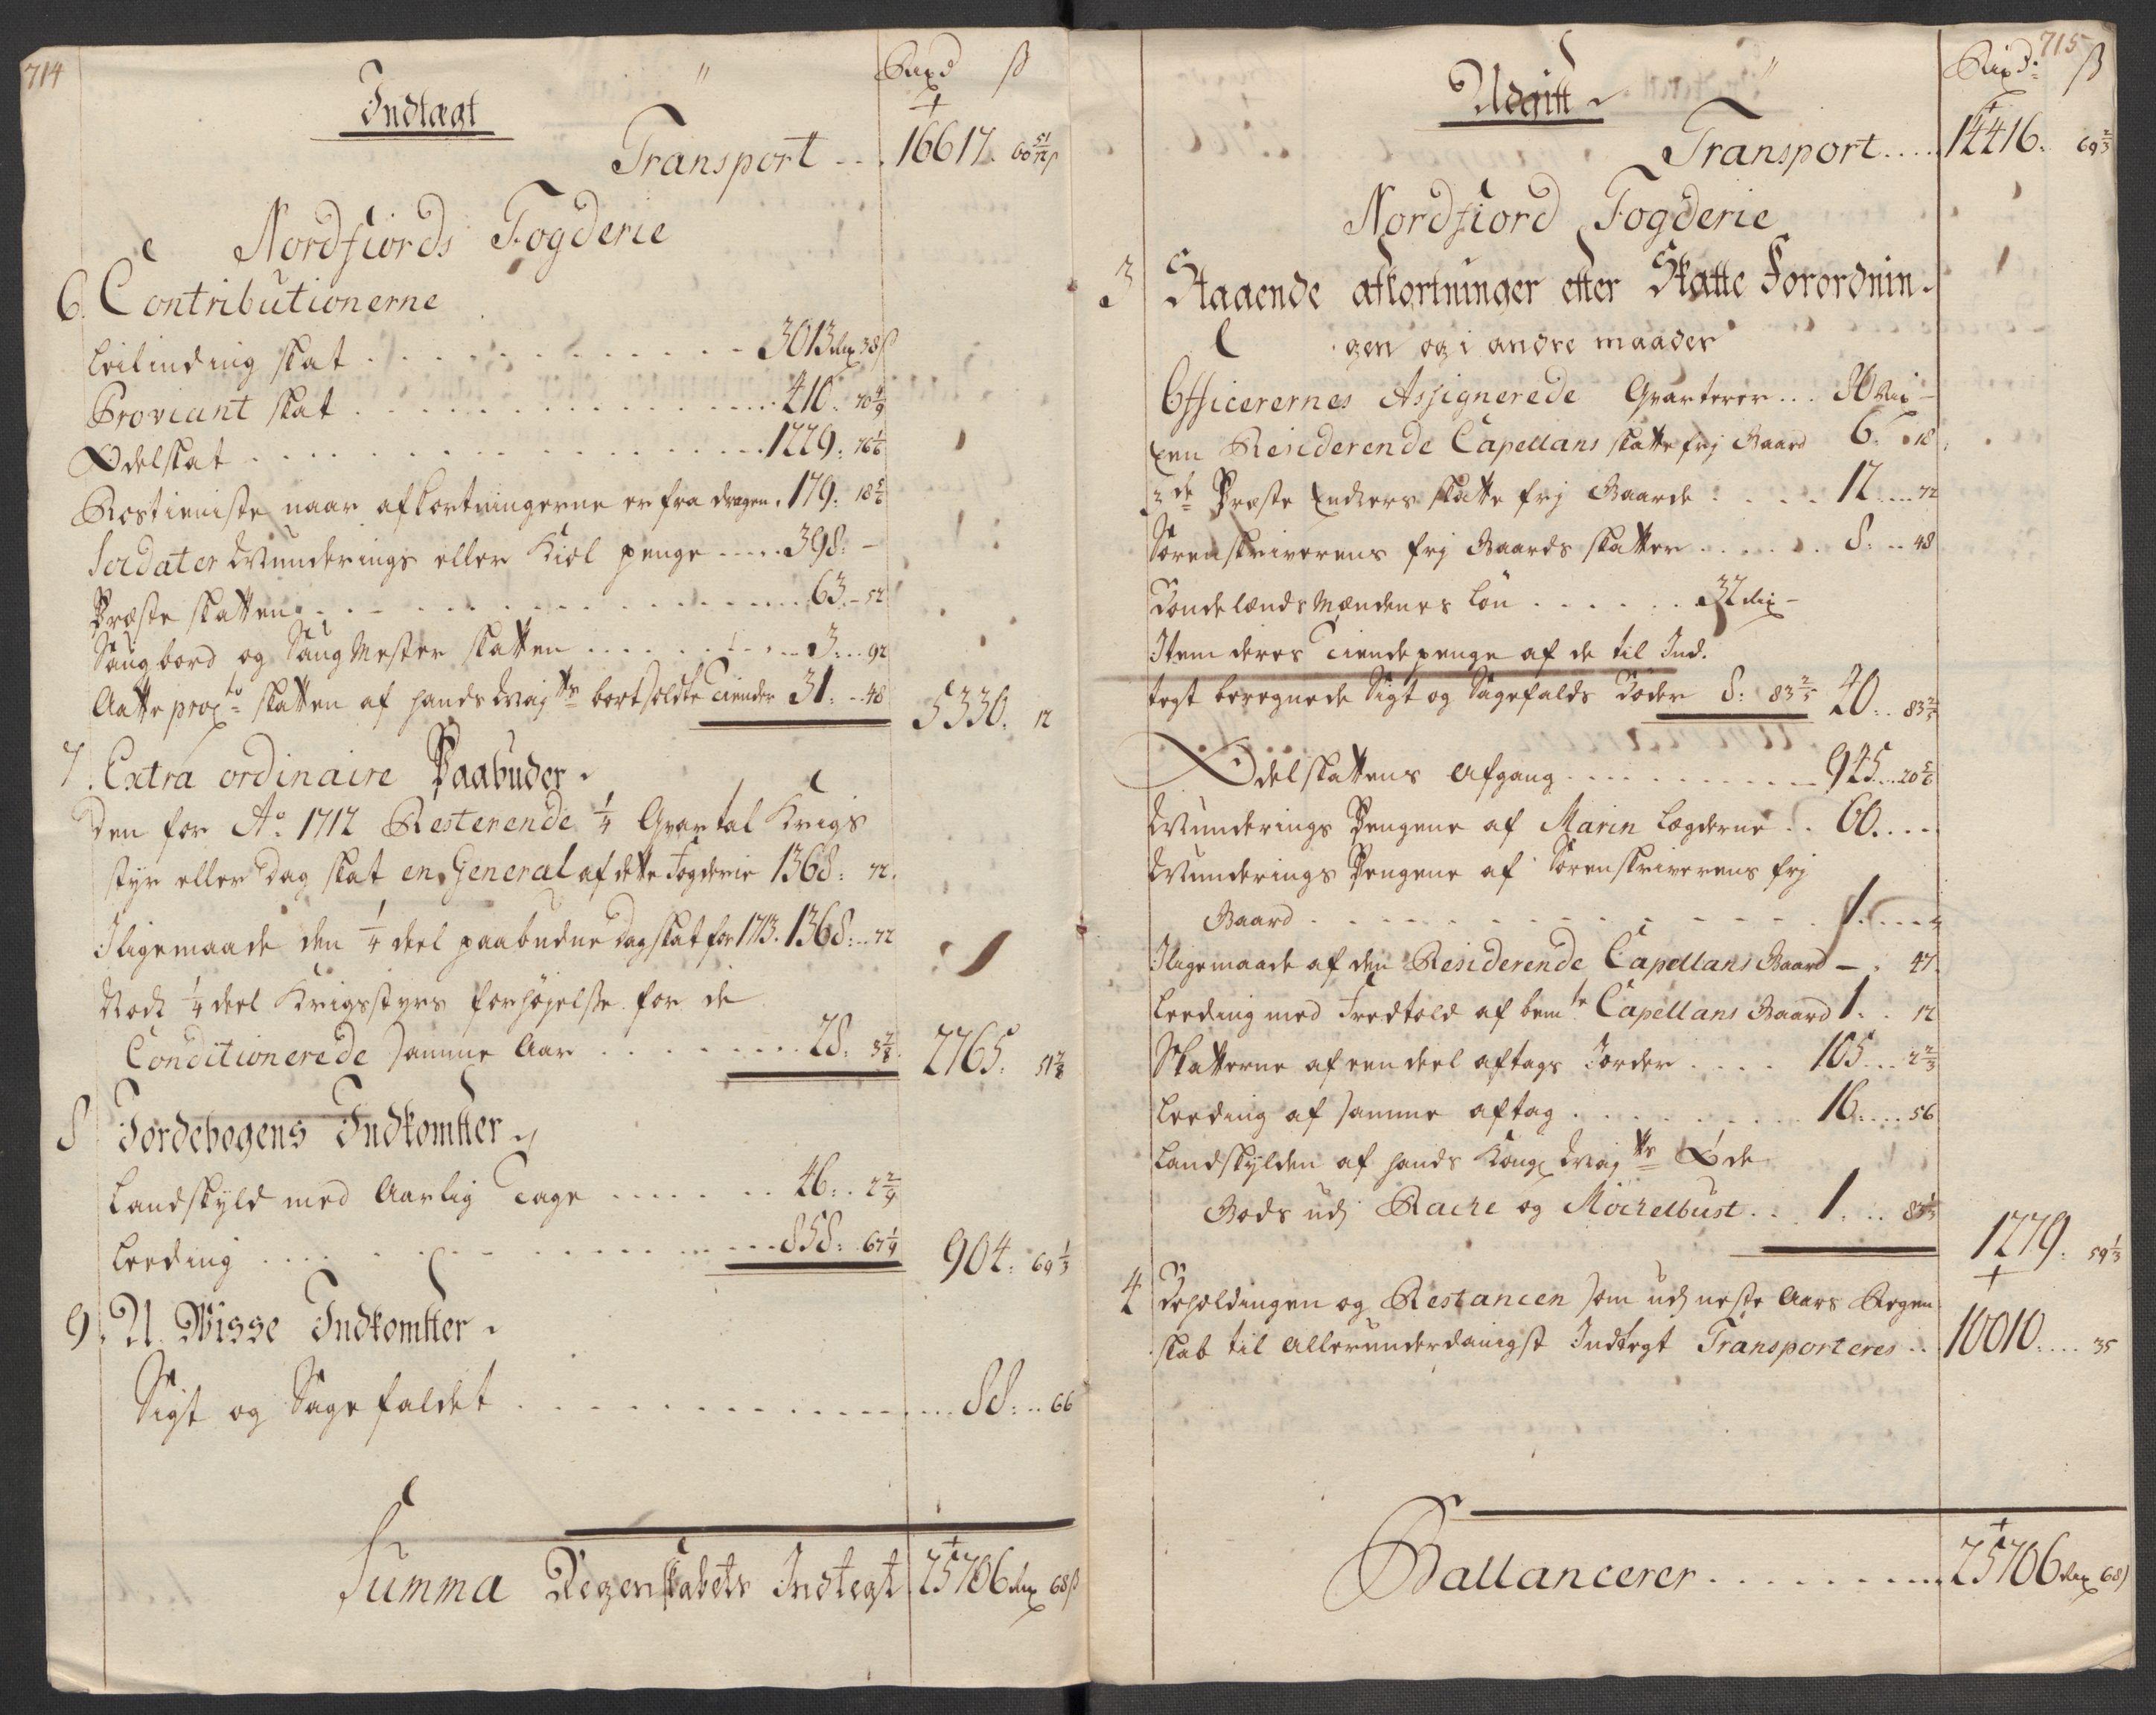 714
Indtægt
Rixd ß
Transport 16617. 60 51/72 ß
Nordfiords Fogderie
6. Contributionerne
Leilinding skat 3013 Rix 38 ß
Proviant skat 410: 70 4/9
Odelskat 1229: 76 1/6
Rostieniste naar afkortningerne er fra dragen. 179: 18 5/6
Soldater Munderings eller Kiol penge 398: -
Præste skatten 63 - 52
Saugbord og Saug Mester skatten 3 92
Aatte prox to skatten af hands Maytts bortsoldte Tiender 31: 48 5330. 12
7. Extra ordinaire Paabuder
Den for Ao. 1712 Resterende 1/4 Qvartal Krigs
styr eller Dag skat en General af dette Fogderie 1368: 72.
Iligemaade den 1/4 deel paabudne Dag skat for 1713. 1368: 72
Noch 1/4 deel Krigsstyrs forhøjelse for de
Conditionerede samme Aar 28: 2765:
8 Jordebogens Indkomster
Landskyld med Aarlig Tage 46: 2 2/9
Leeding 858: 67 1/9 904: 69 1/3
9. U Wisse Indkomster
Sigt og Sagefaldet 88: 66
Summa Regenskabets Indtegt 25706 Rix 68 ß
715
Udgift
Rixd. ß
Transport 14416. 69 2/3
Nordfiord Fogderie
3 Staaende afkortninger efter Skatte Forordnin-
gen og i andre maader
Officerernes Assignerede Qvarterer 80 Rix -
Een Residerende Capellans skatte frj Gaard 6. 18
2de Præste Enchers skatte frj Gaarde 12 72
Sorenskriverens frj Gaards skatter 8: 48
Bondelænds Mændenes Løn 32 Rix -
Item deres Tiendepenge af de til Ind-
tegt beregnede Sigt og Sagefalds Bøder 8: 83 2/5 40: 83 2/5
Odelskattens Afgang 945 20 5/6
Munderings Pengene af Marin Lægderne 60.
Munderings Pengene af Sorenskriverens frj
Gaard 1.
Iligemaade af den Residerende Capellans Gaard - 47.
Leeding med Fredtold af bemte Capellans Gaard 1. 12
Skatterne af een deel aftags Jorder 105 2 2/3
Leeding af samme aftag 16: 56
Landskylden af hands Kongl Maytts Øde
Gods udj Rache og Mochelbust 1. 1279: 59 1/3
4 Beholdingen og Restancen som udj neste Aars Regen
skab til Allerunderdanigst Indtegt Transporteres 10010. 35
Ballancerer 25706 Rix 68 ß